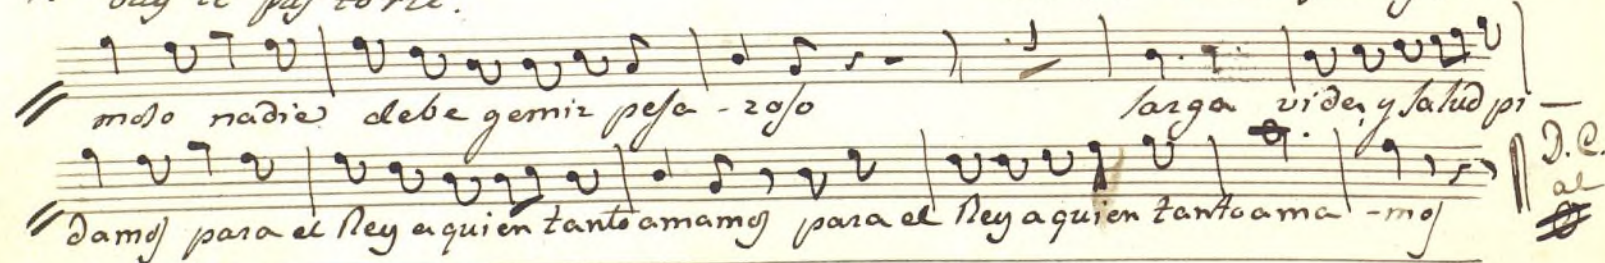 moso nadie debe gemir pesa-roso larga vida, y salud pi-
damos para el Rey a quien tanto amamos para el Rey a quien tanto ama-mos
D.C.
al